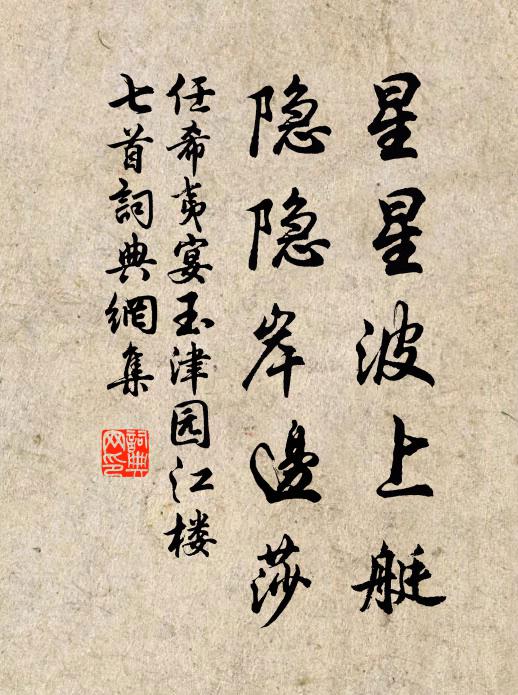 星星波上艇
隐隐岸邊莎
任希夷宴玉津园江楼
七首詞典網集
詞典网印